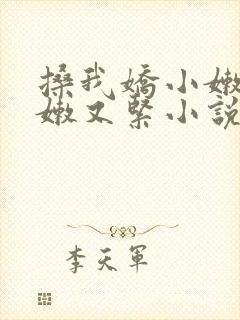 搡我嬌小嫩
嫩又緊小說
李天軍